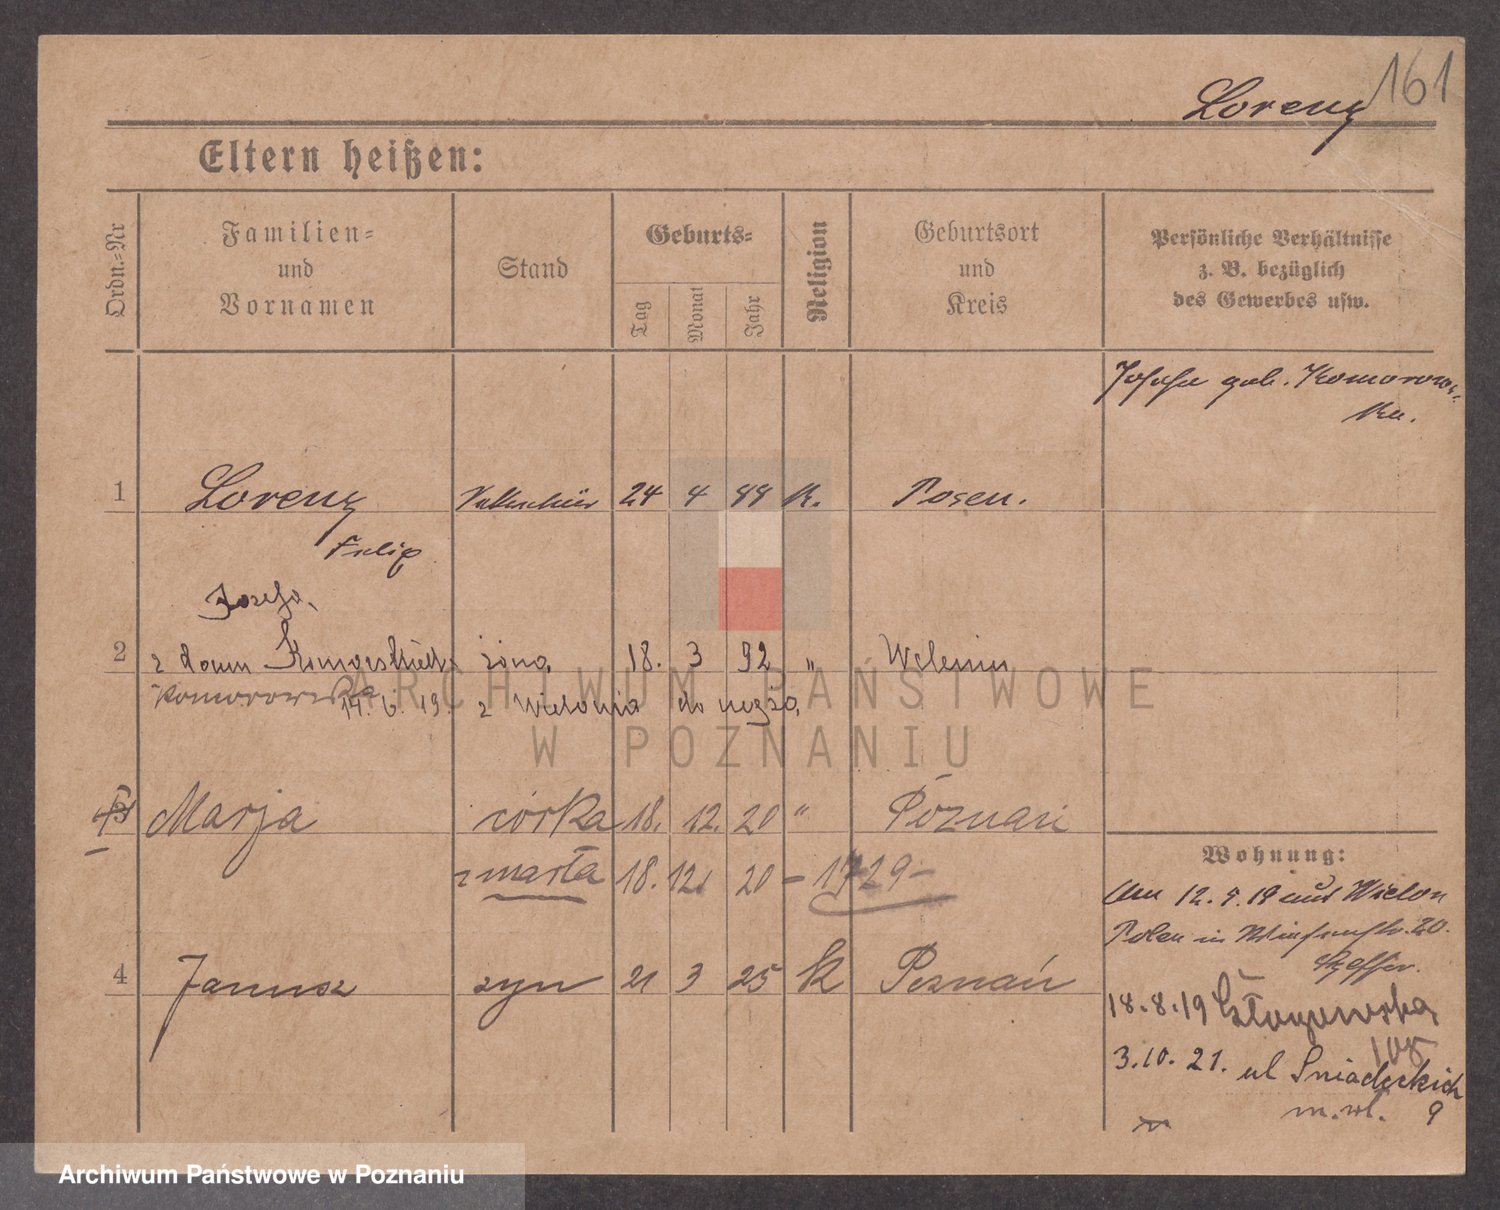 161
Lorenz
Eltern heißen:
Ordn.-Nr
Familien-
und
Vornamen
Stand
Geburts-
Tag
Monat
Jahr
Religion
Geburtsort
und
Kreis
Persönliche Verhältnisse
z. B. bezüglich
des Gewerbes usw.
Josefa geb. Komorows-
ka.
1 Lorenz 24 4 88 K. Posen.
Filip
Józefa
2 z domu żona 18. 3 92 " Wielenin
Komorowska 14. 6. 19. z Wielonia do męża
3 Marja córka 18. 12. 20 " Poznań
zmarła 18. 12. 20 - 1729 -
4 Janusz syn 21 3 25 k Poznań
Wohnung:
Am 12. 5. 19 aus Wielon
Polen in 20.
18.8.19 Głogowska
108
3.10.21. ul Śniadeckich
m.wł. 9
ARCHIWUM PAŃSTWOWE
W POZNANIU
Archiwum Państwowe w Poznaniu